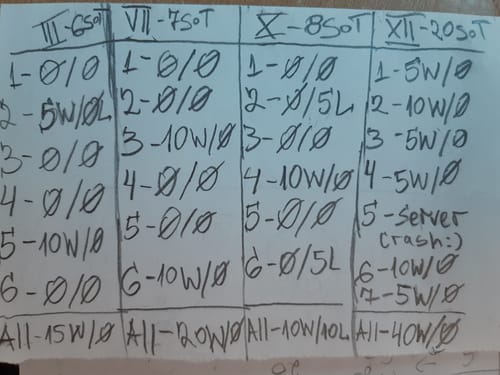 III-6SoT VII-7SoT X-8SoT XII-20SoT
1-Ø/Ø 1-Ø/Ø 1-Ø/Ø 1-5W/Ø
2-5W/ØL 2-Ø/Ø 2-Ø/5L 2-10W/Ø
3-Ø/Ø 3-10W/Ø 3-Ø/Ø 3-5W/Ø
4-Ø/Ø 4-Ø/Ø 4-10W/Ø 4-5W/Ø
5-10W/Ø 5-Ø/Ø 5-Ø/Ø 5-server
crash:)
6-Ø/Ø 6-10W/Ø 6-Ø/5L 6-10W/Ø
7-5W/Ø
All-15W/Ø All-20W/Ø All-10W/10L All-40W/Ø